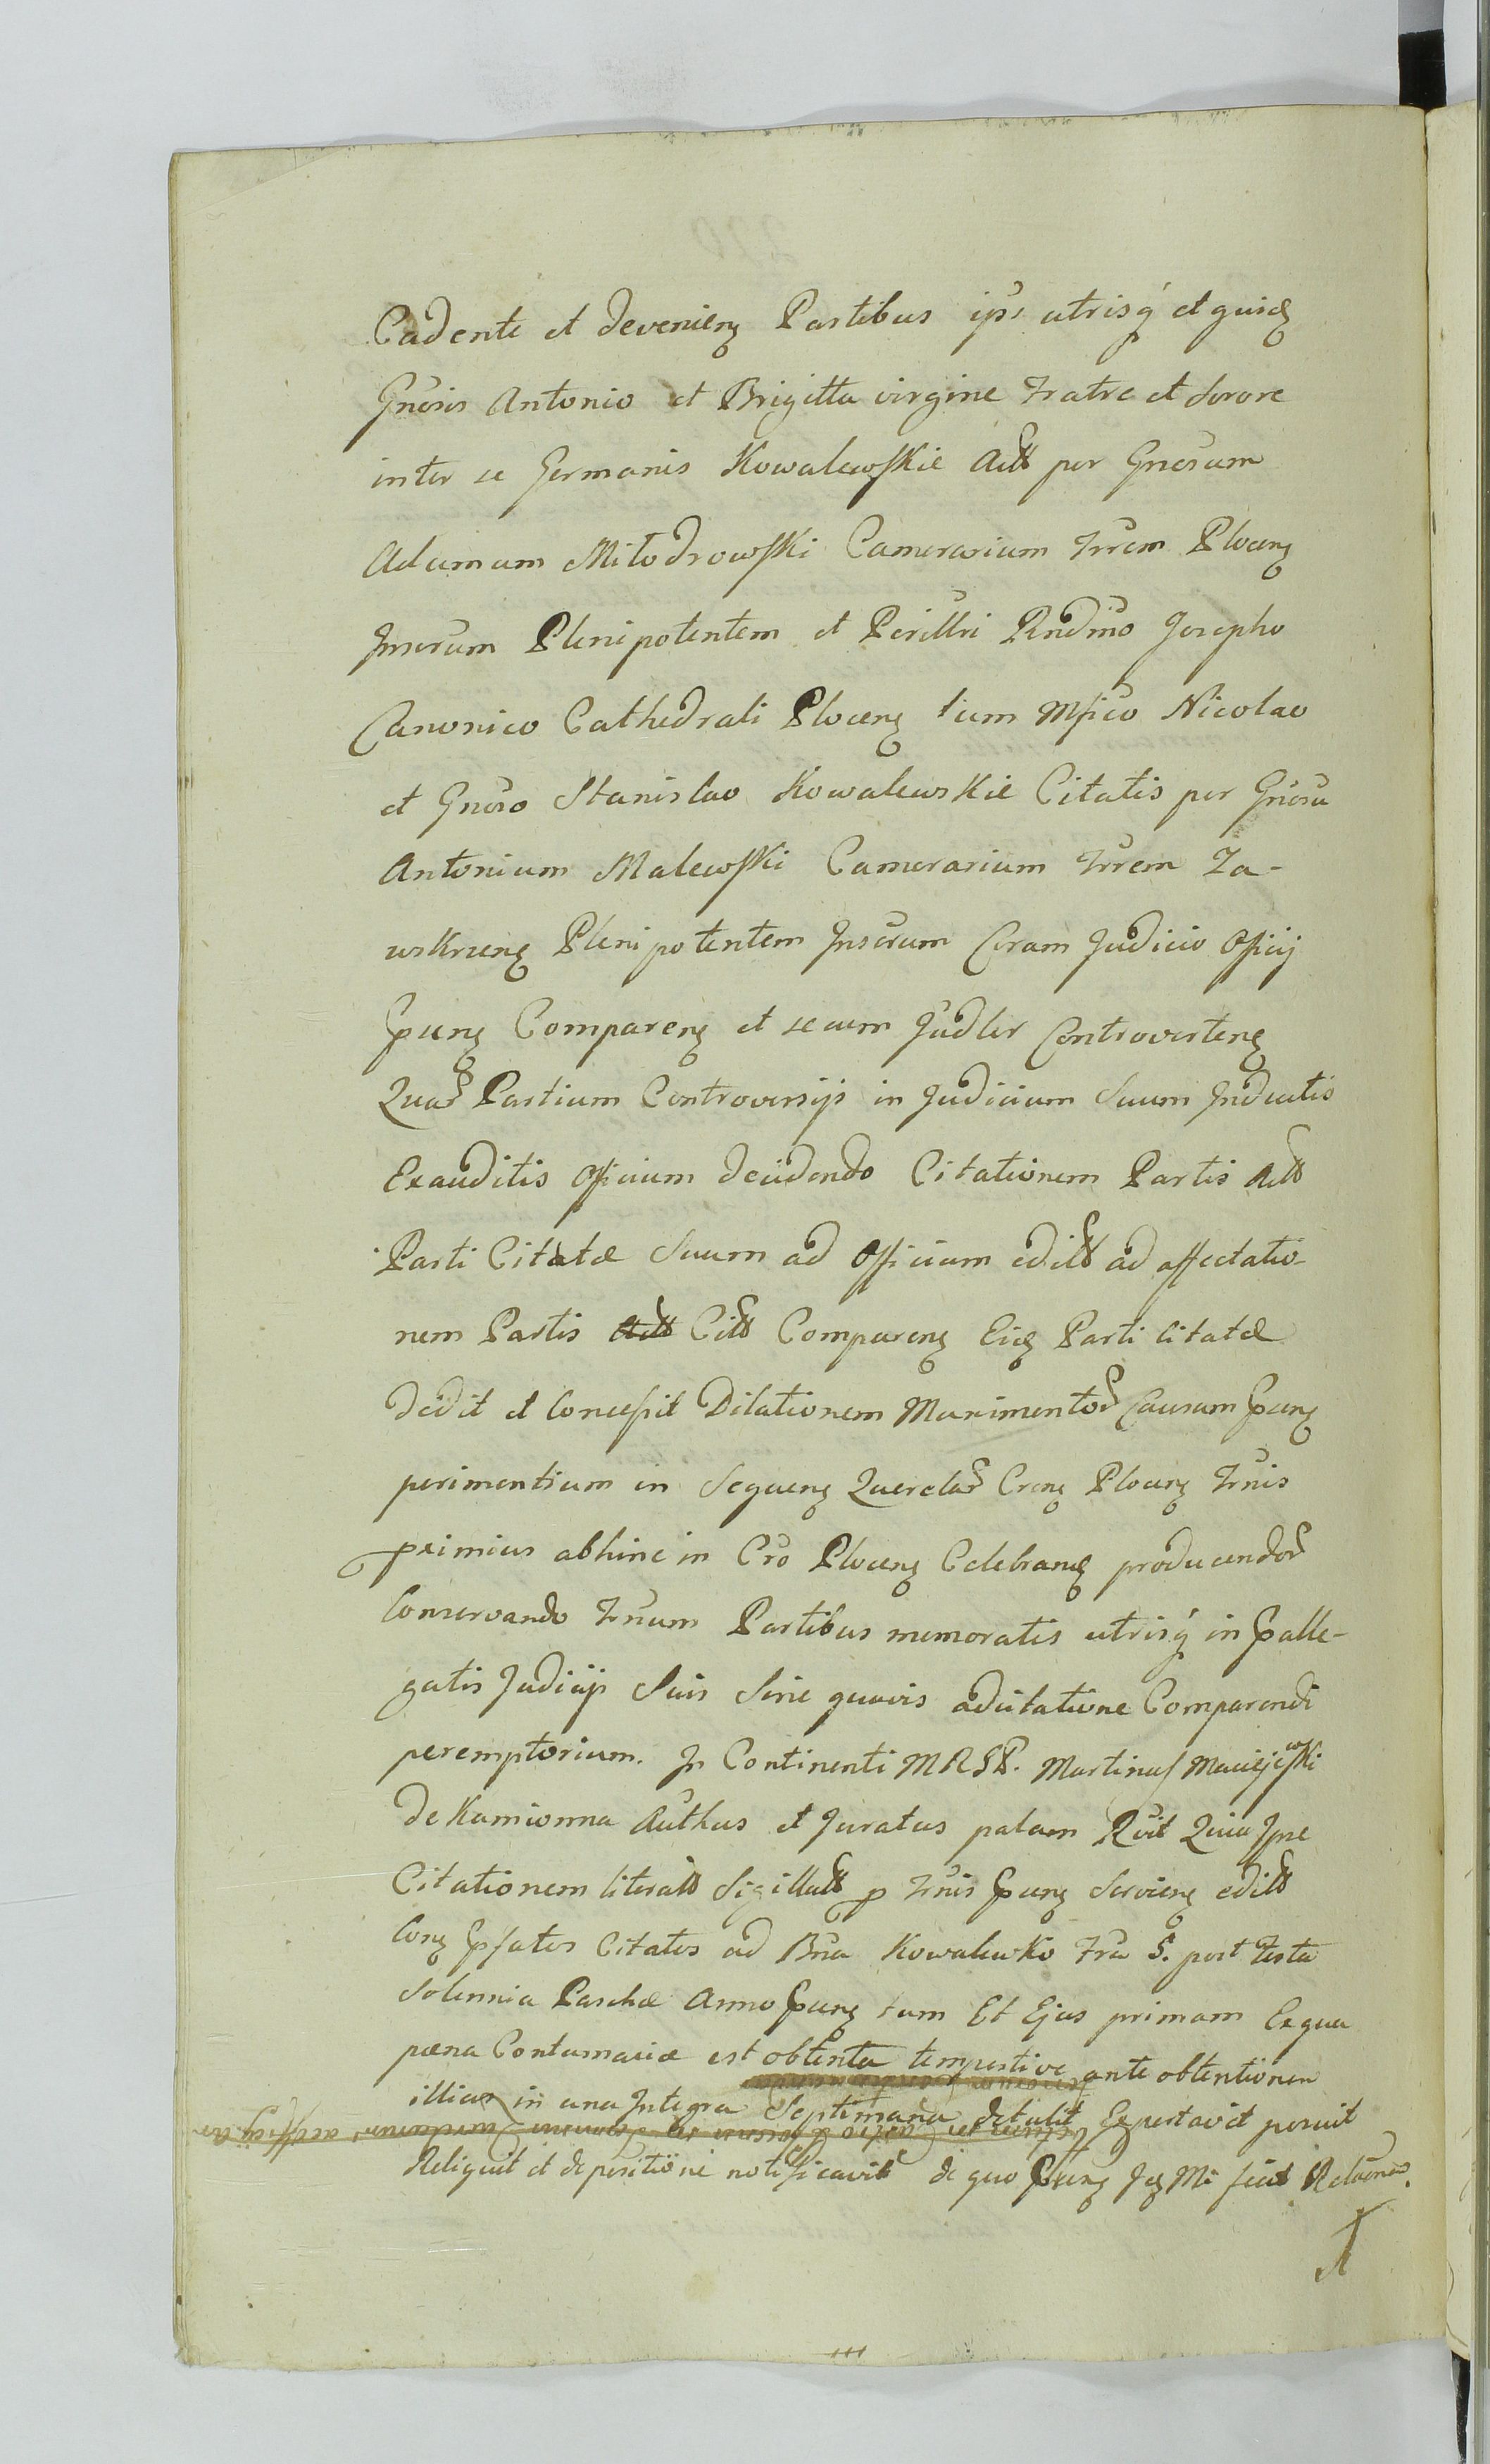 Cadente et devenien Partibus ips utrisq et quisq
Gnosis Antonio et Brigitta virgine Fratre et Sorore
inter se Germanis Kowalewskie Actt per Gnosum
Adamum Miłodrowski Camerarium Trrem Plocen
Inserum Plenipotentem et Perillri Rndmo Josepho
Canonico Cathedrali Plocen tum Mfico Nicolao
et Gnoso Stanislao Kowalewskie Citatis per Gnosu
Antonium Malewski Camerarium Trrem Za-
wskrzen Plenipotentem Inserum Coram Judicio Officij
pnen Comparen et secum Judler Controverten
Quar Partium Controversijs in Judicium Suum Inductis
Exauditis Officium decidendo Citationem Partis Actt
Parti Citatæ Suum ad Officium editt ad affectatio-
nem Partis Citt Comparen Eidq Parti citatæ
dedit et Concessit Dilationem Munimentor Causam pnen
perimentium in Sequen Querelar Cren Plocen Trnis
primius abhinc in Cro Plocen Celebrand producendor
Conservando Trnum Partibus memoratis utrisq in palle-
gatis Judicijs Suis Sine quavis adcitatione Comparendi
peremptorium. In Continenti MRSP. Martinus Maciejewski
de Kamionna Authus et Juratus palam Rvit Quia Ipse
Citationem literatt Sigillatt p Trnis pnen Servien editt
Con pfatos Citatos ad Bna Kowalewko Fra 5. post Festa
Solennia Paschæ Anno pnen tum Et Ejus primam Ex qua
pæna Contumaciæ est obtenta tempestive ante obtentionem
illius in una Integra Septimana detulit Exportavit posuit
Reliquit et depositione notificavit de quo pnen Jq Mi fecit Relaonem.